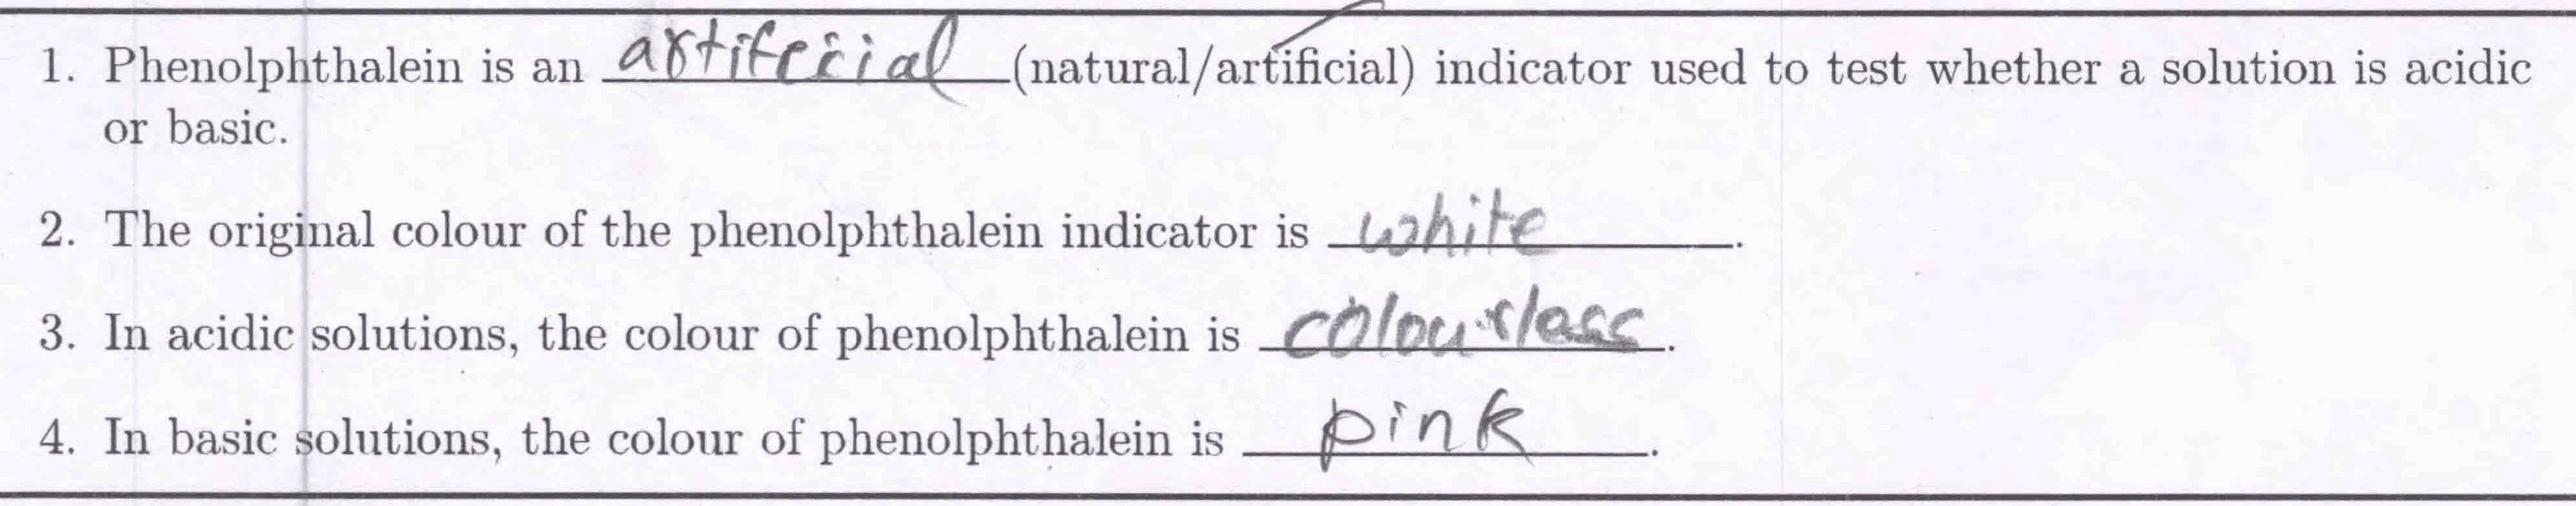 1. Phenolphthalein is an artifecial (natural/artificial) indicator used to test whether a solution is acidic
or basic.
2. The original colour of the phenolphthalein indicator is white.
3. In acidic solutions, the colour of phenolphthalein is colourless.
4. In basic solutions, the colour of phenolphthalein is pink.